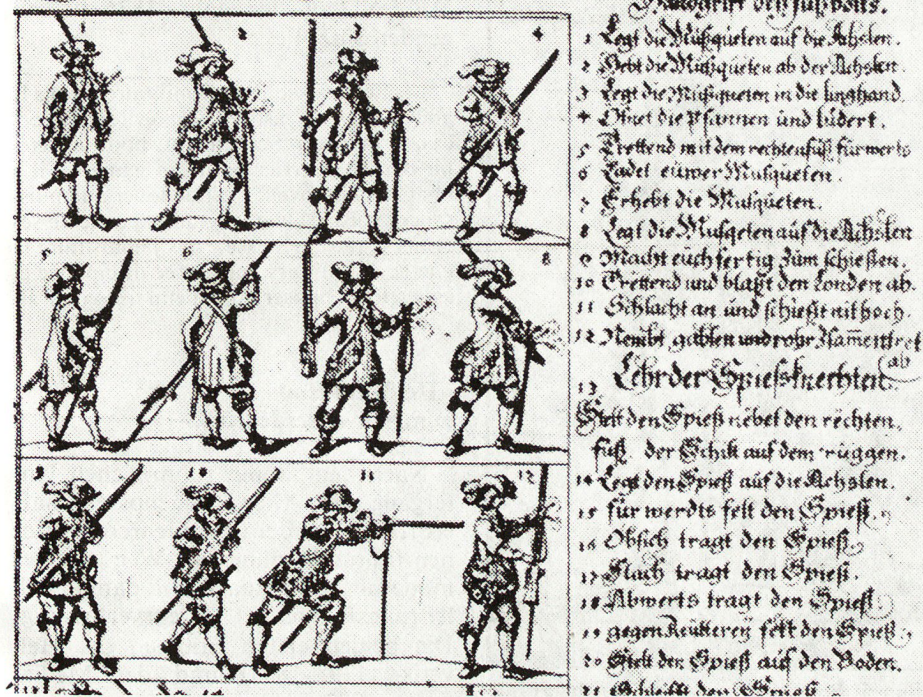 1 2 3 4
5 6 7 8
9 10 11 12
Handgriff deß fußvolks.
1 Legt die Mußqueten auf die Achslen.
2 Hebt die Mußqueten ab der Achslen.
3 Legt die Mußqueten in die linghand.
4 Ofnet die pfannen und lüdert.
5 Trettend mit dem rechten füß fürwerts
6 Ladet eüwer Mußqueten.
7 Erhebt die Mußqüeten.
8 Legt die Mußqeten auf die Achslen
9 Macht euch fertig züm schießen.
10 Trettend und blaßt den Londen ab.
11 Schlacht an und schießt nit hoch.
12 Nembt gablen und rohr
ab
13 Lehr der Spiessknechten
Stelt den Spieß nebet den rechten
füß. der Schilt auf dem ruggen.
14 Legt den Spieß auf die Achslen.
15 für werdts felt den Spieß.
16 Obsich tragt den Spieß.
17 Flach tragt den Spieß.
18 Abwerts tragt den Spieß.
19 gegen Reütterey felt den Spieß.
20 Stelt den Spieß auf den Boden.
21 Schleifft den Spieß